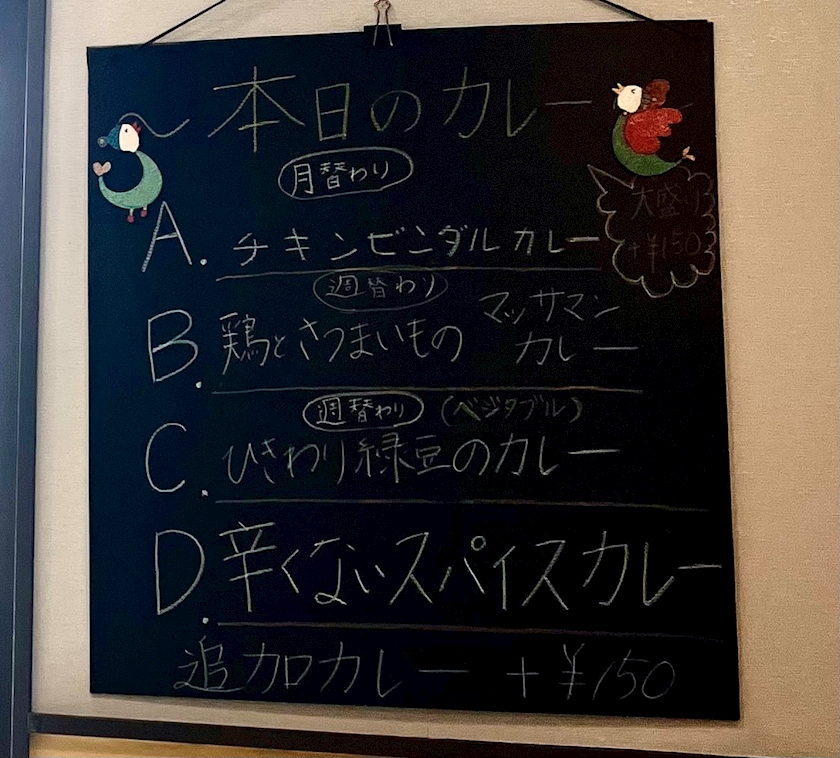 ～本日のカレー
月替わり
A. チキンビンダルカレー
大盛り
+¥150
週替わり
B. 鶏とさつまいもの マッサマン
カレー
週替わり (ベジタブル)
C. ひきわり緑豆のカレー
D. 辛くないスパイスカレー
追加カレー +¥150